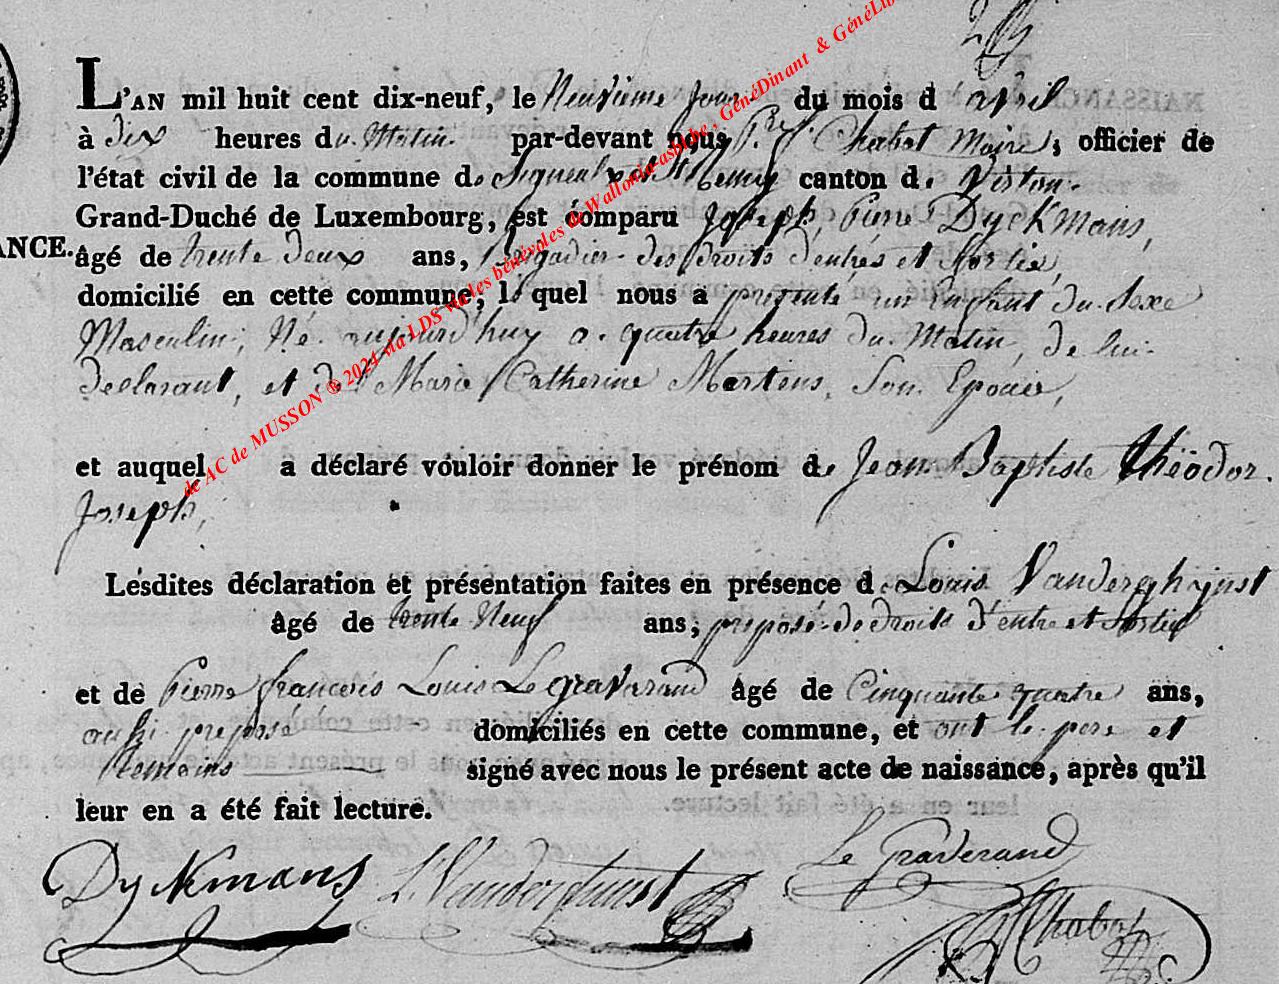 L'AN mil huit cent dix-neuf, le Neuvieme Jour du mois d avril
à dix heures du Matin par-devant nous P.re J. Chabot Maire, officier de
l'état civil de la commune de Signeulx et St Remy canton de Virton.
Grand-Duché de Luxembourg, est comparu Joseph Pierre Dyckmans,
ANCE. âgé de trente deux ans, Brigadier des droits d'entrés et Sortie,
domicilié en cette commune, lequel nous a présenté un Enfant du Sexe
Masculin, Né aujourd'huy a quatre heures du Matin, de lui
declarant, et de Marie Catherine Martens, Son Epouse,
et auquel a déclaré vouloir donner le prénom de Jean Baptiste Thëodor.
Joseph,
Lesdites déclaration et présentation faites en présence d Louis Vanderghijnst
âgé de trente Neuf ans, préposé de droits d'entre et Sortie
et de Pierre françois Louis Le graverand âgé de Cinquante quatre ans,
aussi préposé domiciliés en cette commune, et ont le pere et
temoins signé avec nous le présent acte de naissance, après qu'il
leur en a été fait lecture.
Dyckmans L. Vanderghinst Le Graverand
Chabot
de AC de MUSSON ® 2024 via LDS via les bénévoles de Wallonia-asbl.be, GénéDinant & GénéLib